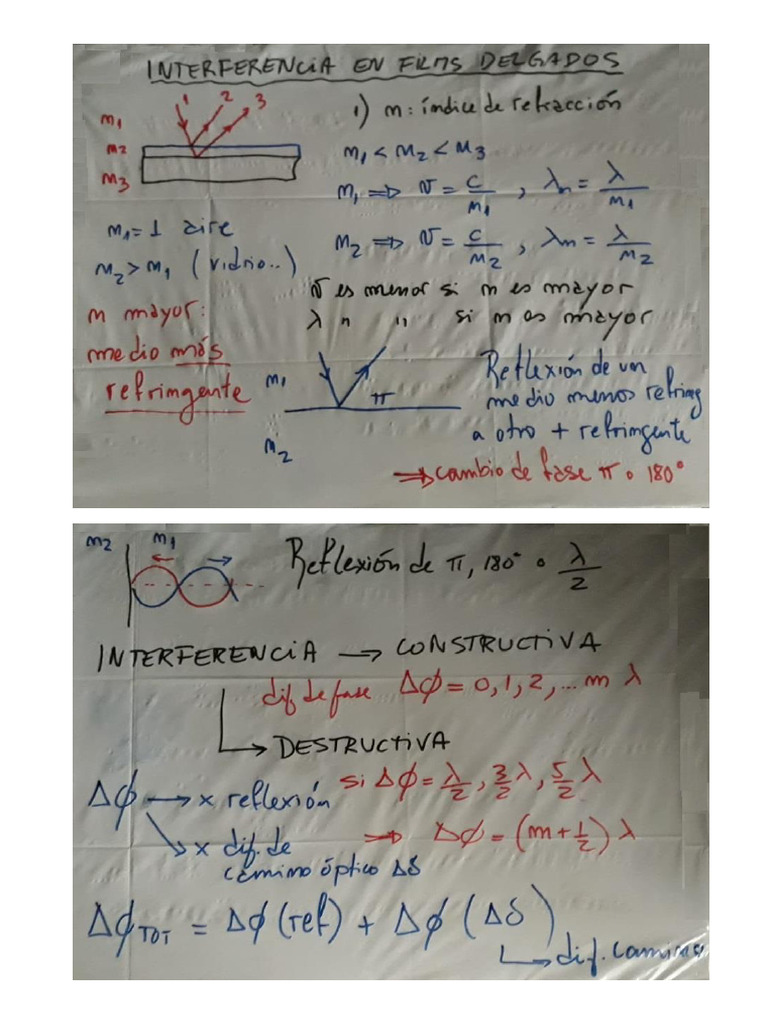 INTERFERENCIA EN FILMS DELGADOS
1 2 3
n1
n2
n3
1) n: índice de refracción
n1 < n2 < n3
n1 => v = c/n1 , λn = λ/n1
n2 => v = c/n2 , λn = λ/n2
n1 = 1 aire
n2 > n1 (vidrio..)
v es menor si n es mayor
λ " " si n es mayor
n mayor:
medio más
refringente
n1
π
n2
Reflexión de un
medio menos refring
a otro + refringente
=> cambio de fase π o 180°
n2 n1
Reflexión de π, 180° o λ/2
INTERFERENCIA → CONSTRUCTIVA
dif. de fase Δφ = 0, 1, 2, ... m λ
DESTRUCTIVA
si Δφ = λ/2, 3/2 λ, 5/2 λ
Δφ → x reflexión
=> Δφ = (m + 1/2) λ
x dif. de
camino óptico Δδ
ΔφTOT = Δφ (ref) + Δφ (Δδ)
dif. caminos